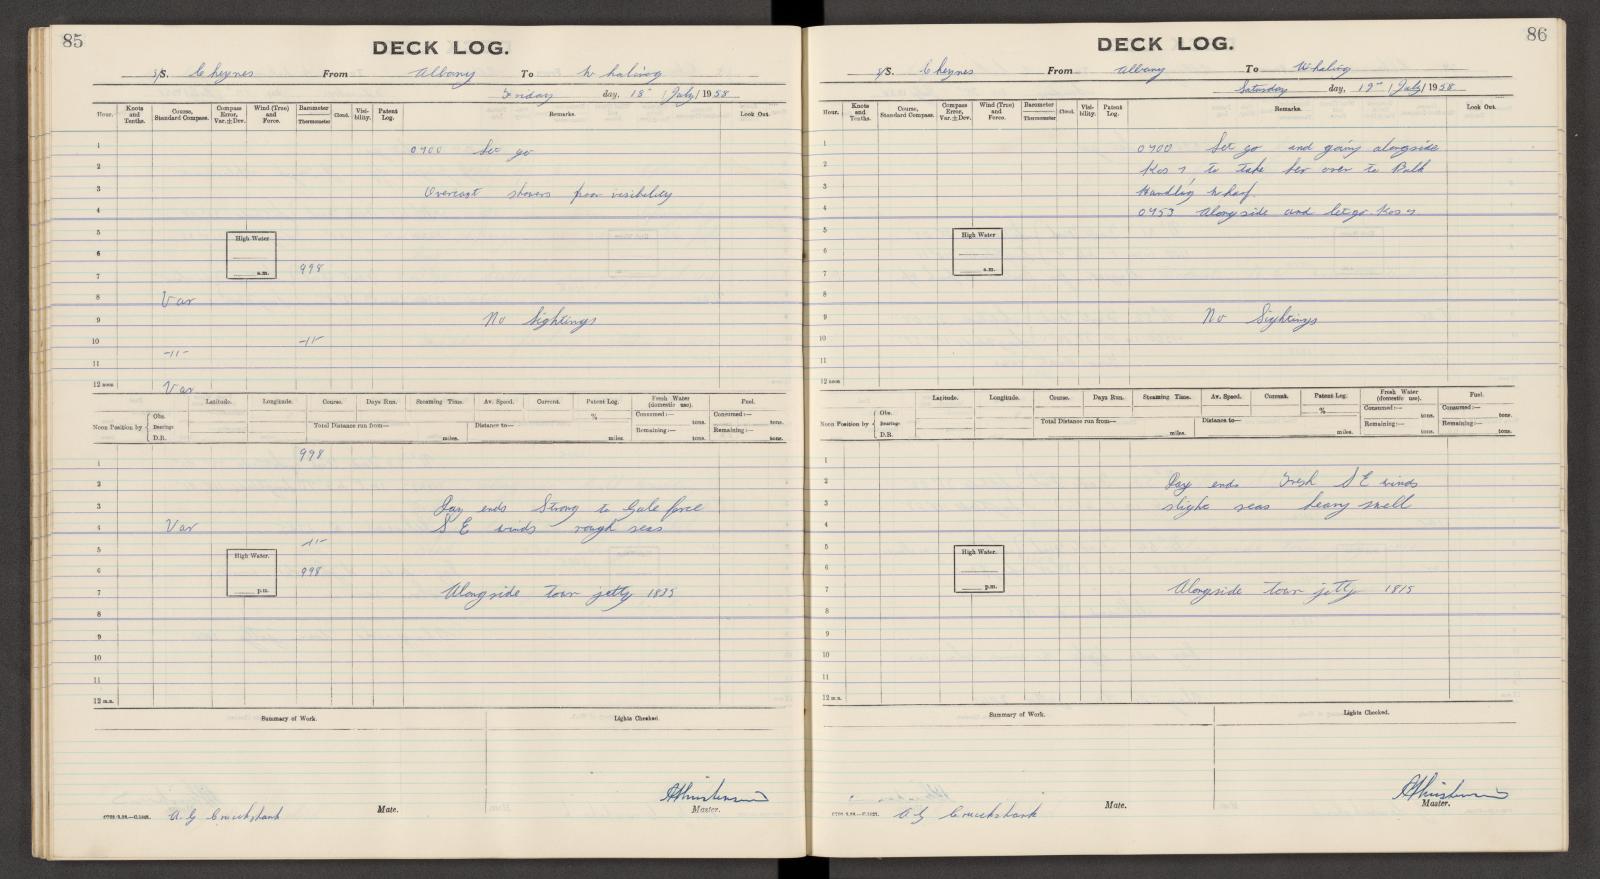 85
DECK LOG.
S/S. Cheynes From Albany To Whaling
Friday day, 18th / July / 1958
Hour. Knots and Tenths. Course, Standard Compass. Compass Error, Var.±Dev. Wind (True) and Force. Barometer Thermometer Cloud. Visibility. Patent Log. Remarks. Look Out.
1
0700 Let go
2
3 Overcast showers poor visibility
4
5
High Water
6
a.m.
7 998
8 Var
9 No Sightings
10 -11-
11 -11-
12 noon Var
Latitude. Longitude. Course. Days Run. Steaming Time. Av. Speed. Current. Patent Log. Fresh Water (domestic use). Fuel.
Noon Position by Obs. Bearings D.R. Total Distance run from— miles. Distance to— miles. % Consumed:— tons. Remaining:— tons. Consumed:— tons. Remaining:— tons.
1 998
2
3 Day ends Strong to Gale force
4 Var S E winds rough seas
5 -11-
High Water.
6 998
p.m.
7 Alongside town jetty 1835
8
9
10
11
12 m.n.
Summary of Work. Lights Checked.
A. G Cruickshank Mate. Master.
86
DECK LOG.
S/S. Cheynes From Albany To Whaling
Saturday day, 19th / July / 1958
Hour. Knots and Tenths. Course, Standard Compass. Compass Error, Var.±Dev. Wind (True) and Force. Barometer Thermometer Cloud. Visibility. Patent Log. Remarks. Look Out.
1 0700 Let go and going alongside
2 Kos 7 to take her over to Bulk
3 Handling Wharf.
4 0753 Alongside and let go Kos 7
5
High Water
6
a.m.
7
8
9 No Sightings
10
11
12 noon
Latitude. Longitude. Course. Days Run. Steaming Time. Av. Speed. Current. Patent Log. Fresh Water (domestic use). Fuel.
Noon Position by Obs. Bearings D.R. Total Distance run from— miles. Distance to— miles. % Consumed:— tons. Remaining:— tons. Consumed:— tons. Remaining:— tons.
1
2 Day ends Fresh S E winds
3 slight seas heavy swell
4
5
High Water.
6
p.m.
7 Alongside town jetty 1815
8
9
10
11
12 m.n.
Summary of Work. Lights Checked.
A G Cruickshank Mate. Master.